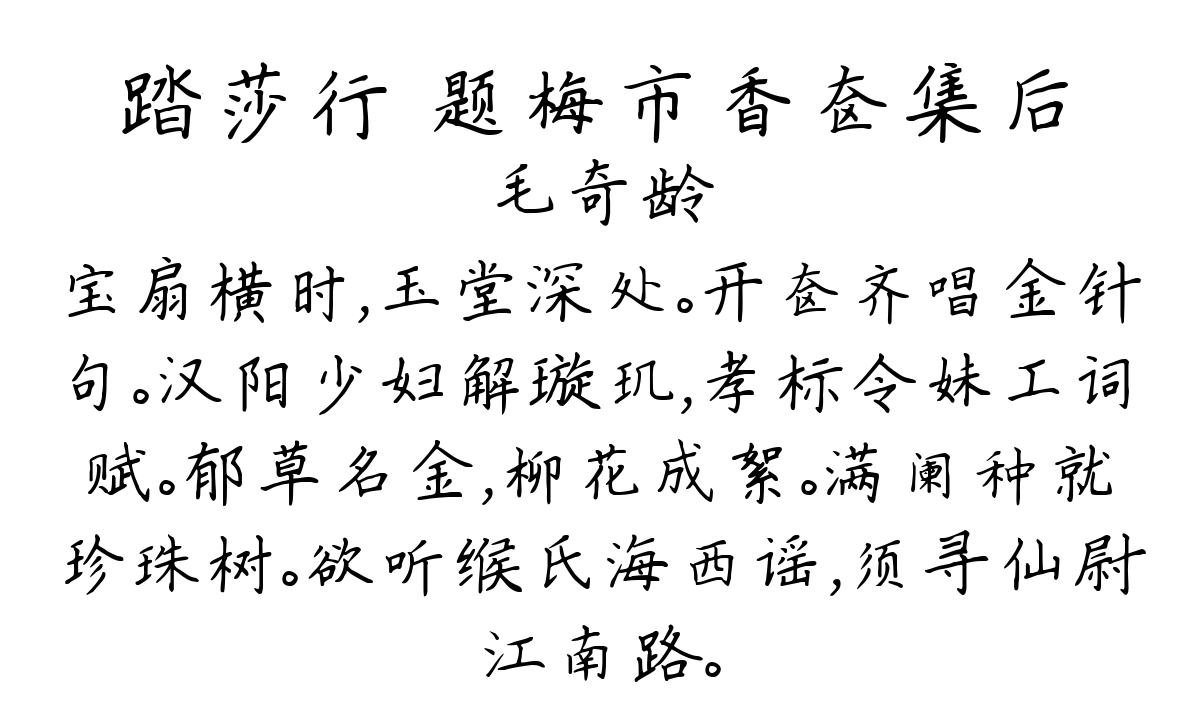 踏莎行 题梅市香奁集后
毛奇龄
宝扇横时,玉堂深处。开奁齐唱金针
句。汉阳少妇解璇玑,孝标令妹工词
赋。郁草名金,柳花成絮。满阑种就
珍珠树。欲听缑氏海西谣,须寻仙尉
江南路。